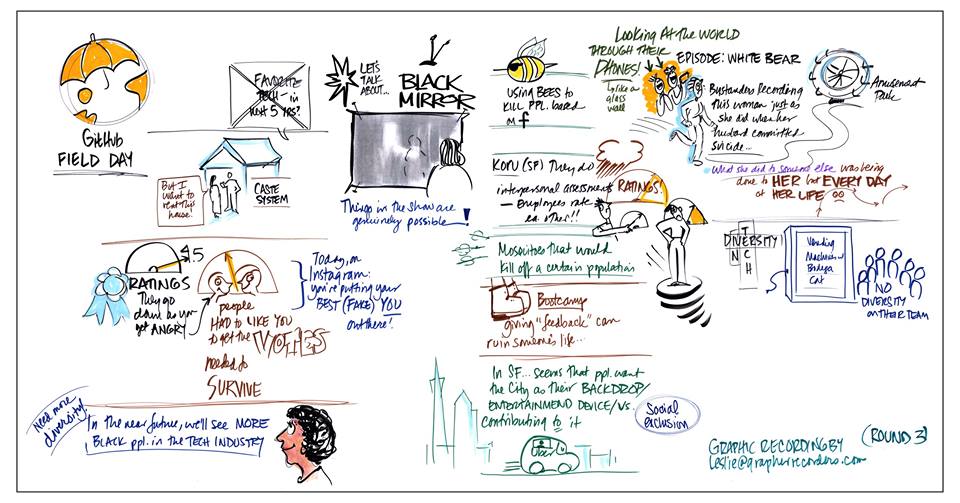 GitHub
FIELD DAY
FAVORITE
TECH - in
next 5 YRS?
But I
want to
rent this
house!
CASTE
SYSTEM
4.5
RATINGS
They go
down as you
get ANGRY
people
HAD TO LIKE YOU
to get the VOTES
needed to
SURVIVE
Today, on
Instagram:
you're putting your
BEST (FAKE) YOU
out there!
Need more
diversity!
In the near future, we'll see MORE
BLACK ppl. in the TECH INDUSTRY
LET'S
TALK
ABOUT...
BLACK
MIRROR
Things in the show are
genuinely possible!
USING BEES to
KILL PPL. based
f
KORU (SF) They do
interpersonal assessments
— Employees rate
ea. other!!
RATINGS!
Mosquitoes that would
kill off a certain population
Bootcamp
giving "feedback" can
ruin someone's life...
In SF... seems that ppl. want
the City as their BACKDROP/
ENTERTAINMEND DEVICE/VS.
contributing to it
Uber
Social
exclusion
Looking At the WORLD
THROUGH THEIR
PHONES!
like a
glass
wall
EPISODE: WHITE BEAR
Bystanders Recording
this woman just as
she did when her
husband committed
suicide...
Amusement
Park
What she did to someone else was being
done to HER but EVERY DAY
of HER LIFE
DIVERSITY
IN
TECH
Vending
Machine of
Bodega
Cat
NO
DIVERSITY
on THEIR TEAM
GRAPHIC RECORDING BY
leslie@graphicrecorders.com
(ROUND 3)